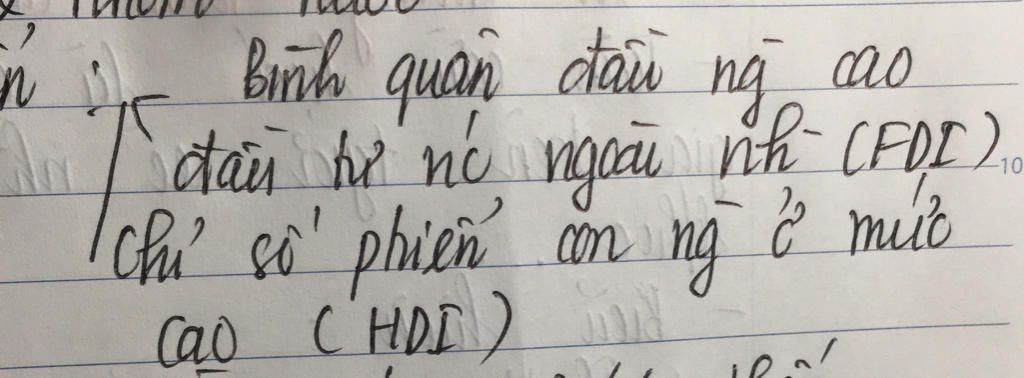 : Bình quân đầu ng̀ cao
đầu tư nc´ ngoài nh̀ (FDI)
chỉ số phiến con ng̀ ở mức
cao (HDI)